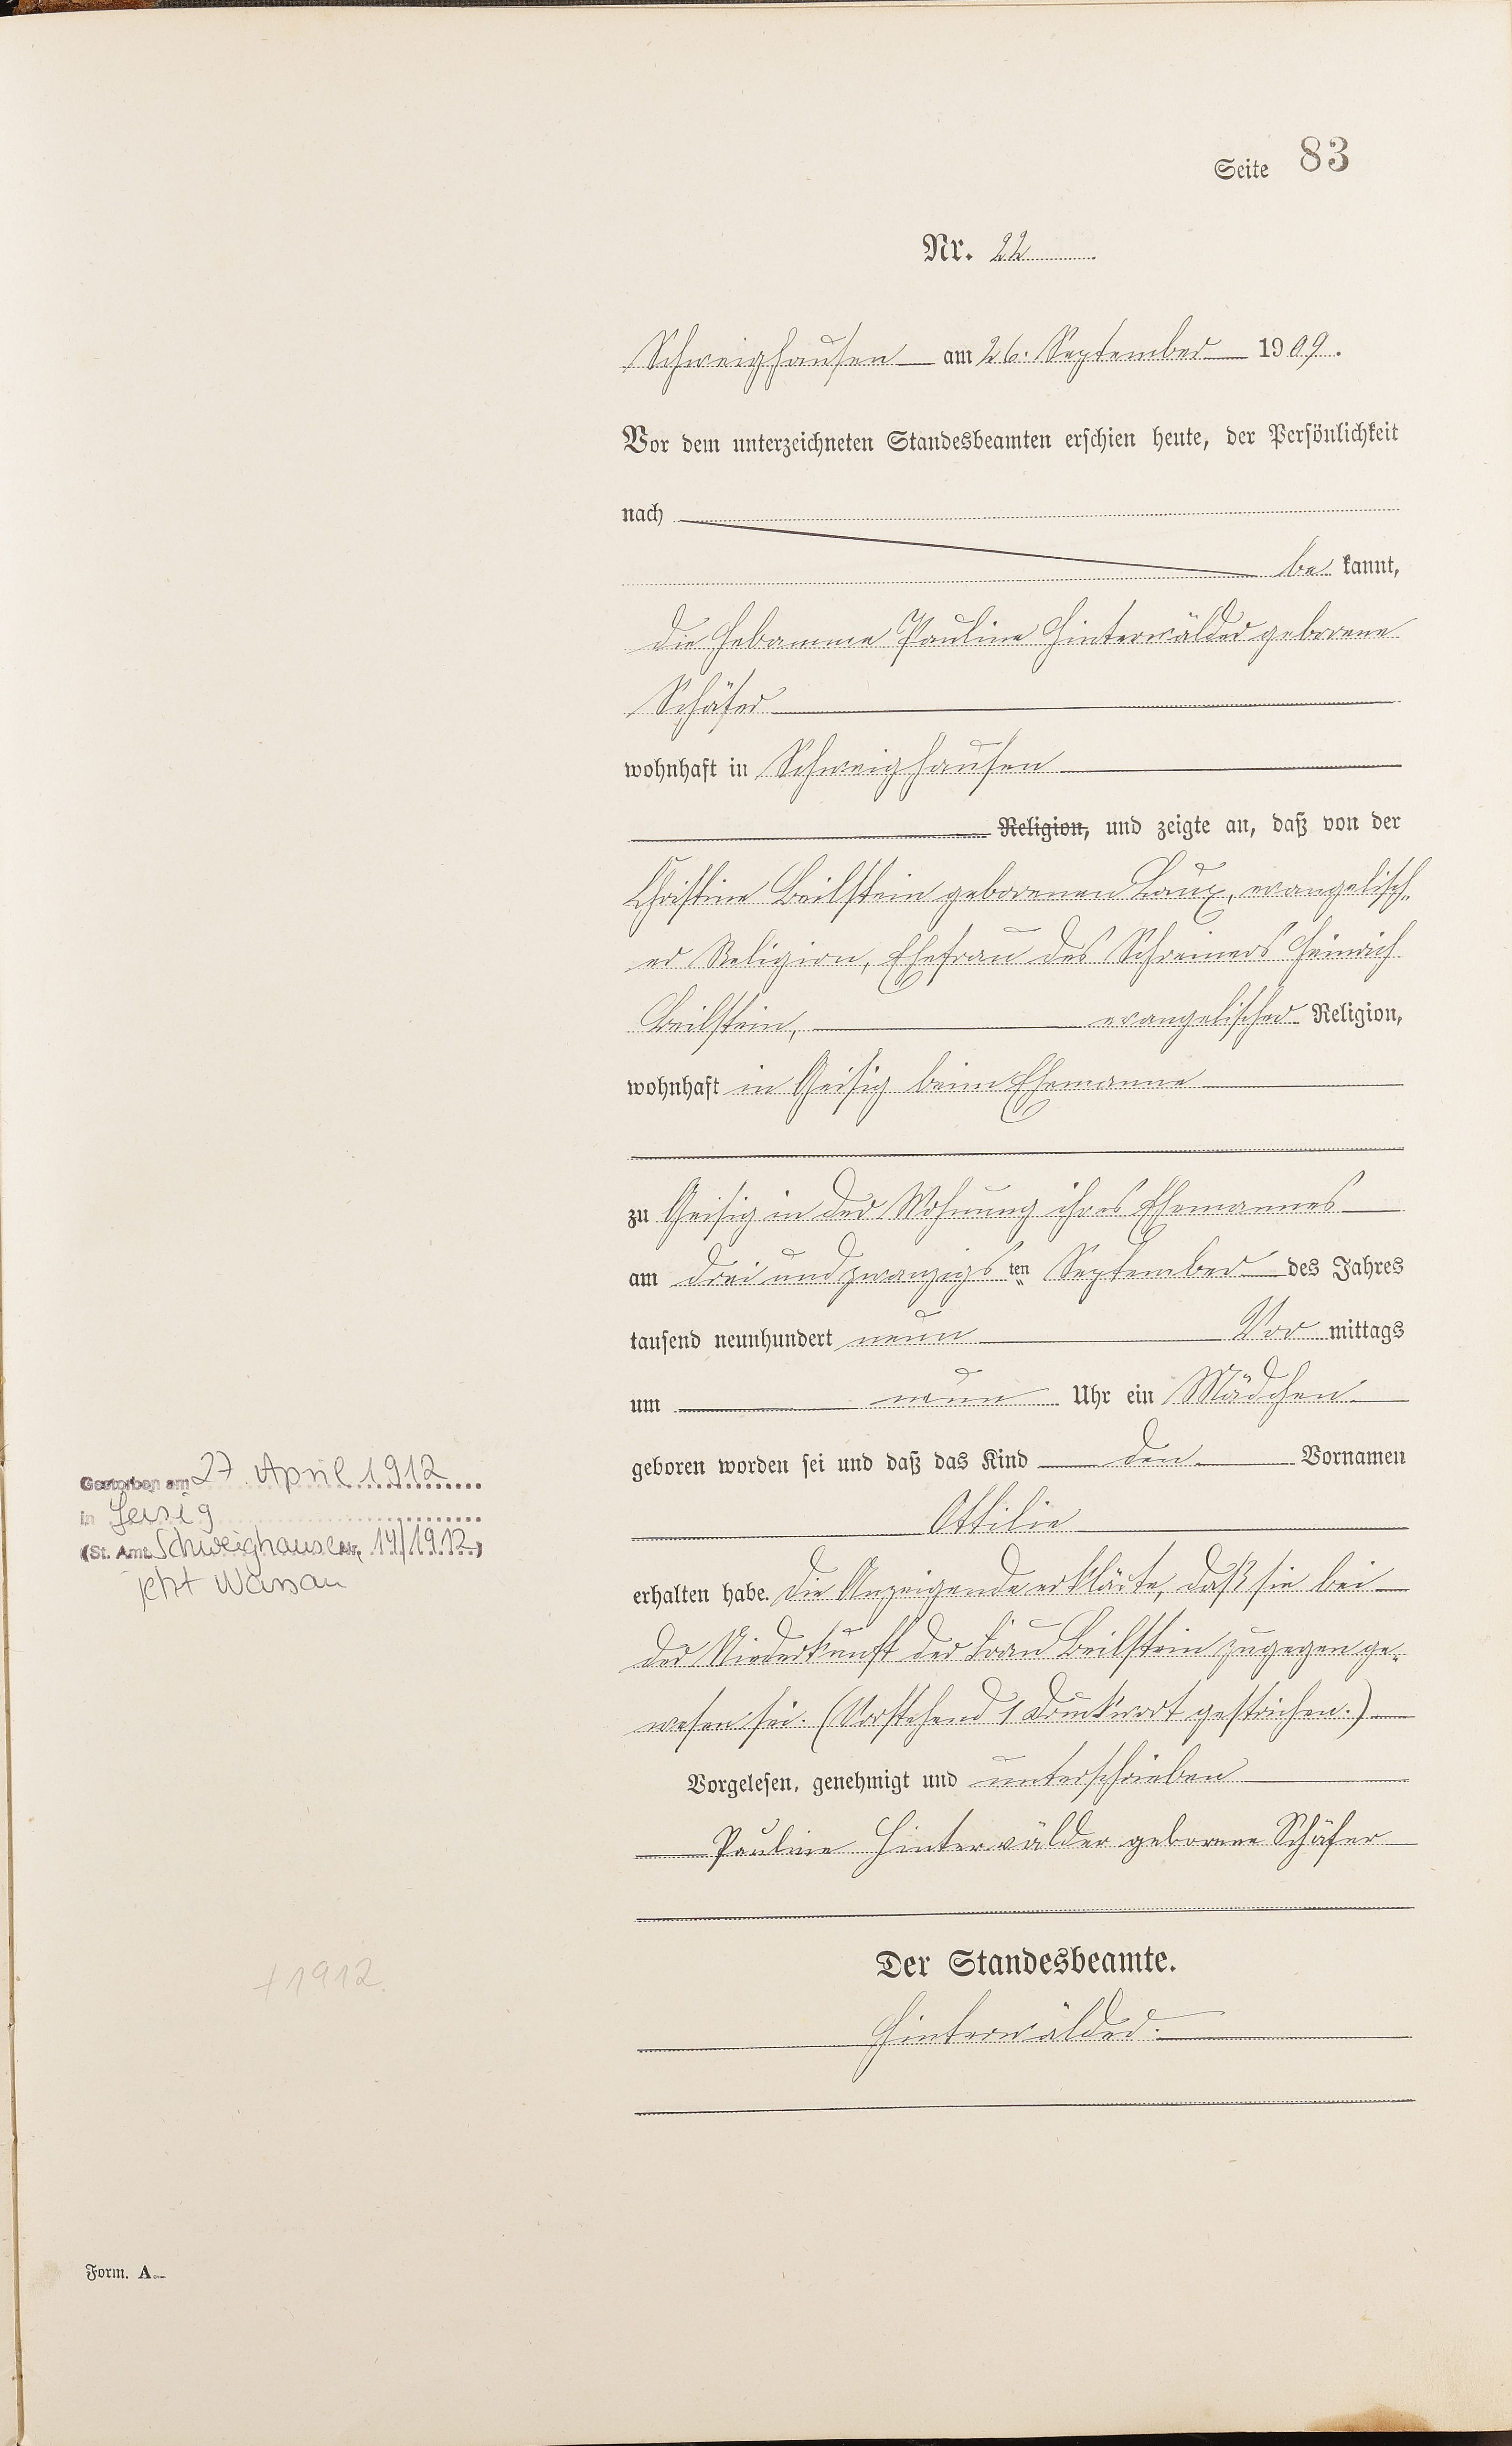 Seite 83
Nr. 22
Schweighausen am 26. September 1909.
Vor dem unterzeichneten Standesbeamten erschien heute, der Persönlichkeit
nach
be kannt,
die Hebamme Pauline Hinterwälder geborene
Schäfer
wohnhaft in Schweighausen
Religion, und zeigte an, daß von der
Christine Beilstein geborenen Laux, evangelisch-
er Religion, Ehefrau des Schreiners Heinrich
Beilstein, evangelischer Religion,
wohnhaft in Geisig beim Ehemanne
zu Geisig in der Wohnung ihres Ehemannes
am drei und zwanzigs ten September des Jahres
tausend neunhundert neun Vor mittags
um neun Uhr ein Mädchen
geboren worden sei und daß das Kind den Vornamen
Ottilie
erhalten habe. Die Anzeigende erklärte, daß sie bei
der Niederkunft der Frau Beilstein zugegen ge-
wesen sei. (Vorstehend 1 Druckwort gestrichen.)
Vorgelesen, genehmigt und unterschrieben
Pauline Hinterwälder geborene Schäfer
Der Standesbeamte.
Hinterwälder.
Gestorben am 27. April 1912
in Geisig
(St. Amt Schweighausen Nr. 14/1912)
jetzt Nassau
+1912.
Form. A.